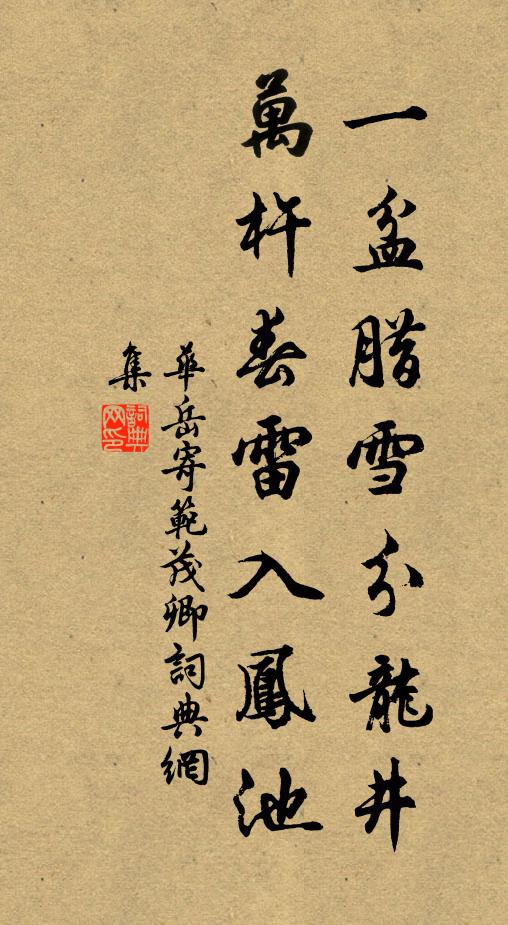 一盆腊雪分龍井
萬杵春雷入鳳池
華岳寄範茂卿詞典網
集
詞典网印